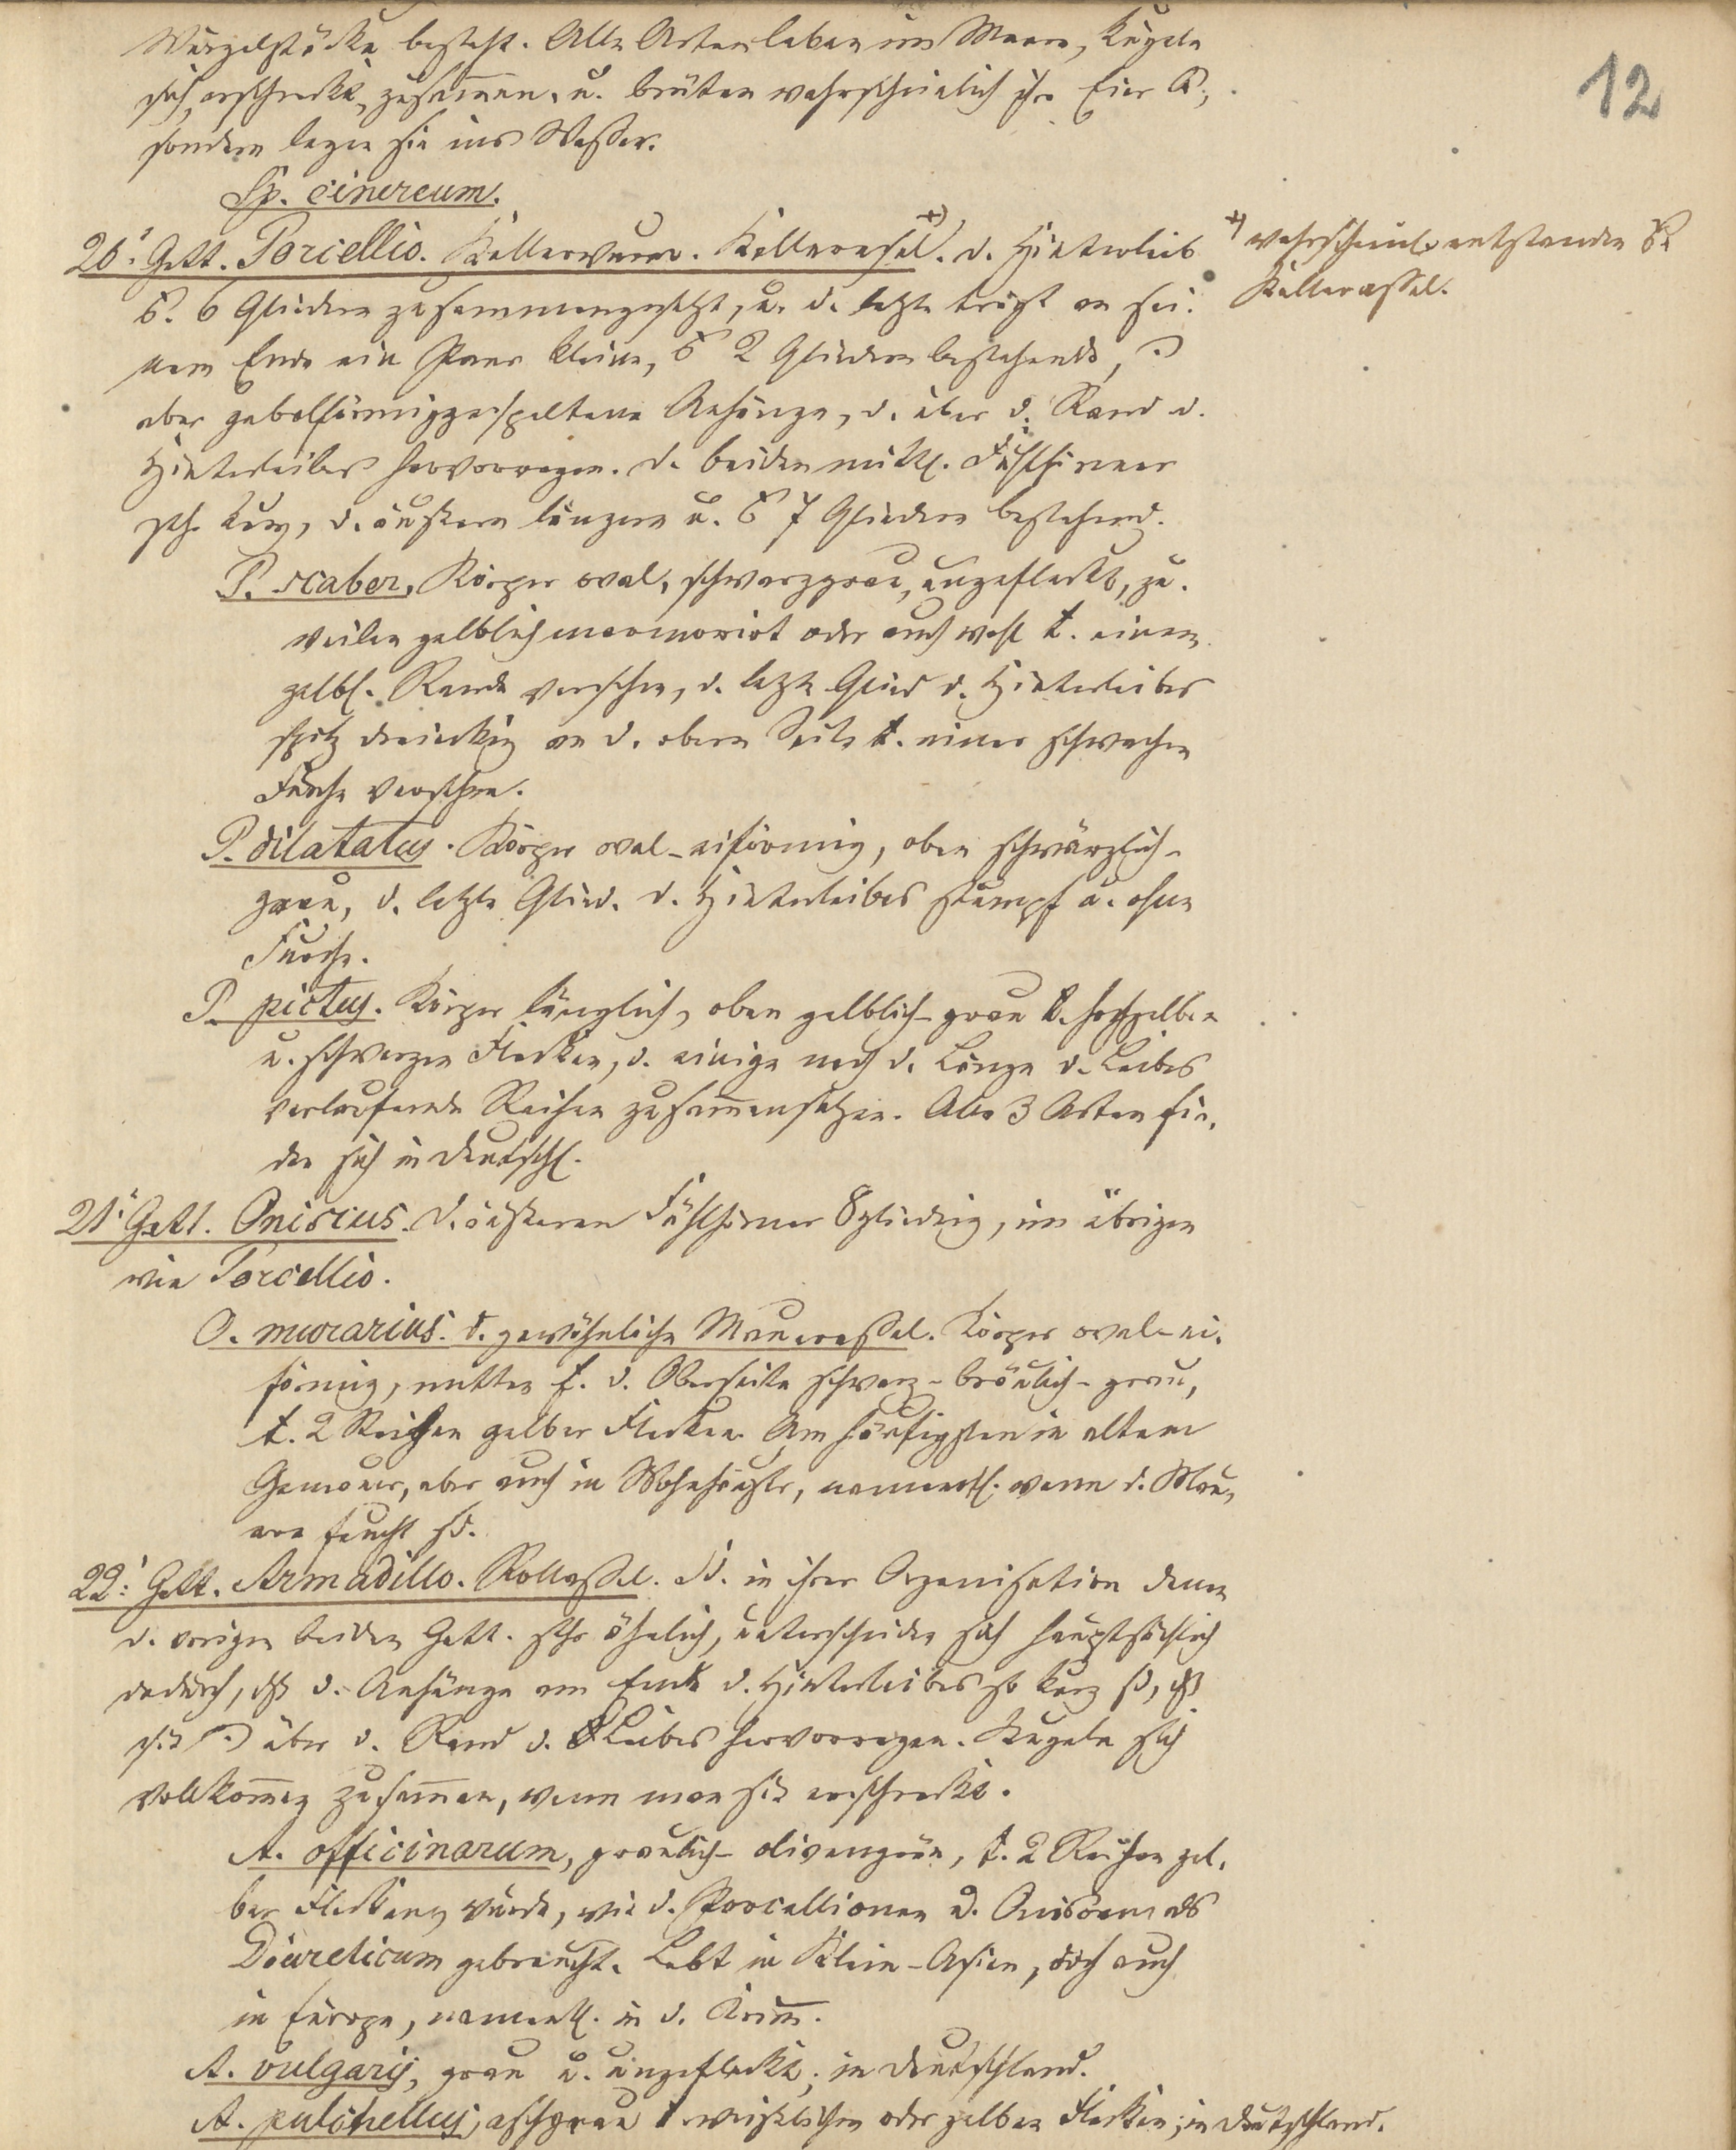 12
Wurzelstöcke besteht. Alle Arten leben im Meere, kugeln
sich, erschreckt, zusammen, u. brüten wahrscheinlich ihre Eier
sondern legen sie ins Wasser.
Sp. cinereum.
Gatt. Porcellio. Kellerwurm. Kelleresel +). d. Hinterleib
+) wahrscheinl. entstanden
Kellerassel.
6 Gliedern zusammengesetzt, u. d. letzte trägt an sei-
nem Ende ein Paar kleine, 2 Gliedern bestehende,
aber gabelförmig gespaltene Anhänge, d. über d. Rand d.
Hinterleibes hervorragen. d. beiden mittl. Fühlhörner
sehr kurz, d. äußern längern u. 7 Gliedern bestehend.
P. scaber, Körper oval, schwarzgrau, ungefleckt, zu-
weilen gelblich marmorirt oder auch wohl t. einem
gelbl. Rande versehen, d. letzte Glied d. Hinterleibes
spitz dreieckig an d. obern Seite t. einer schwachen
Furche versehen.
P. dilatatus. Körper oval-eiförmig, oben schwärzlich-
grau, d. letzte Glied. d. Hinterleibes stumpf u. ohne
Furche.
P. pictus. Körper länglich, oben gelblich-grau t. hochgelben
u. schwarzen Flecken, d. einige nach d. Länge d. Leibes
verlaufende Reihen zusammensetzen. Alle 3 Arten fin-
den sich in Deutschl.
21. Gatt. Oniscus. D. äußeren Fühlhörner 8gliedrig, im übrigen
wie Porcellio.
O. murarius. d. gewöhnliche Mauerassel. Körper oval-ei-
förmig, mitten f. d. Oberseite schwarz-bräulich-grau,
t. 2 Reihen gelber Flecken. Am häufigsten in altem
Gemäuer, aber auch in Wohnhäusern, namentl. wenn d. Mau-
ern feucht sd.
22. Gatt. Armadillo. Rollassel. sd. in ihrer Organisation denen
d. vorigen beiden Gatt. sehr ähnlich, unterscheiden sich hauptsächlich
dadurch, dß d. Anhänge am Ende d. Hinterleibes so kurz sd, dß
sie über d. Rand d. Leibes hervorragen. Kugeln sich
vollkommen zusammen, wenn man sie erschreckt.
A. officinarum, graulich-olivengrün, t. 2 Reihen gel-
ber Flecken, wurde, wie d. Porcellionen u. Oniscen als
Diureticum gebraucht. Lebt in Klein-Asien, doch auch
in Europa, namentl. in d. Krim.
A. vulgaris, grau u. ungefleckt; in Deutschland.
A. pulchellus, aschgrau t weißlichen oder gelben Flecken; in Deutschland.